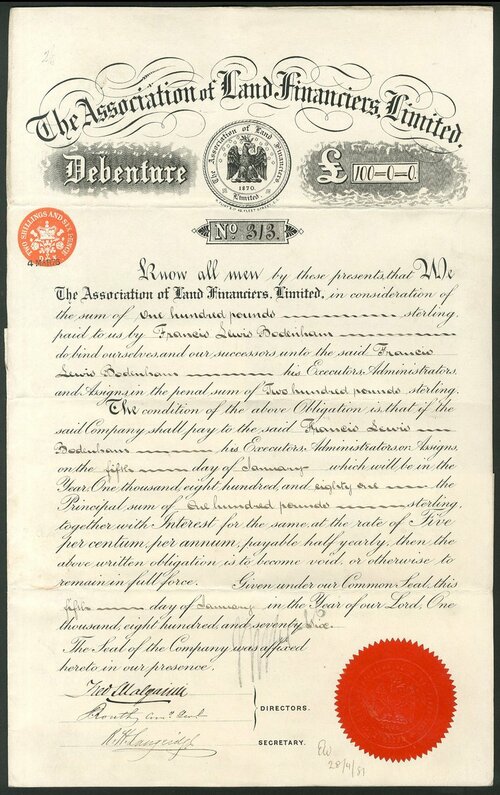 The Association of Land Financiers, Limited.
Debenture
The Association of Land Financiers,
1870.
Limited.
£ 100=0=0.
No 313.
TWO SHILLINGS AND SIX PENCE
Know all men by these presents, that We
The Association of Land Financiers, Limited, in consideration of
the sum of One hundred pounds sterling
paid to us by Francis Lewis Bodenham
do bind ourselves and our successors unto the said Francis
Lewis Bodenham his Executors, Administrators,
and Assigns, in the penal sum of Two hundred pounds sterling.
The condition of the above Obligation is, that if the
said Company, shall pay to the said Francis Lewis
Bodenham his Executors Administrators, or Assigns,
on the fifth day of January which will be in the
Year, One thousand, eight hundred, and eighty one the
Principal sum of One hundred pounds sterling,
together with Interest for the same, at the rate of Five
per centum, per annum, payable half yearly, then the
above written obligation is to become void, or otherwise to
remain in full force. Given under our Common Seal, this
fifth day of January in the Year of our Lord, One
thousand, eight hundred, and seventy six.
The Seal of the Company was affixed
hereto in our presence.
DIRECTORS.
SECRETARY.
28/4/81